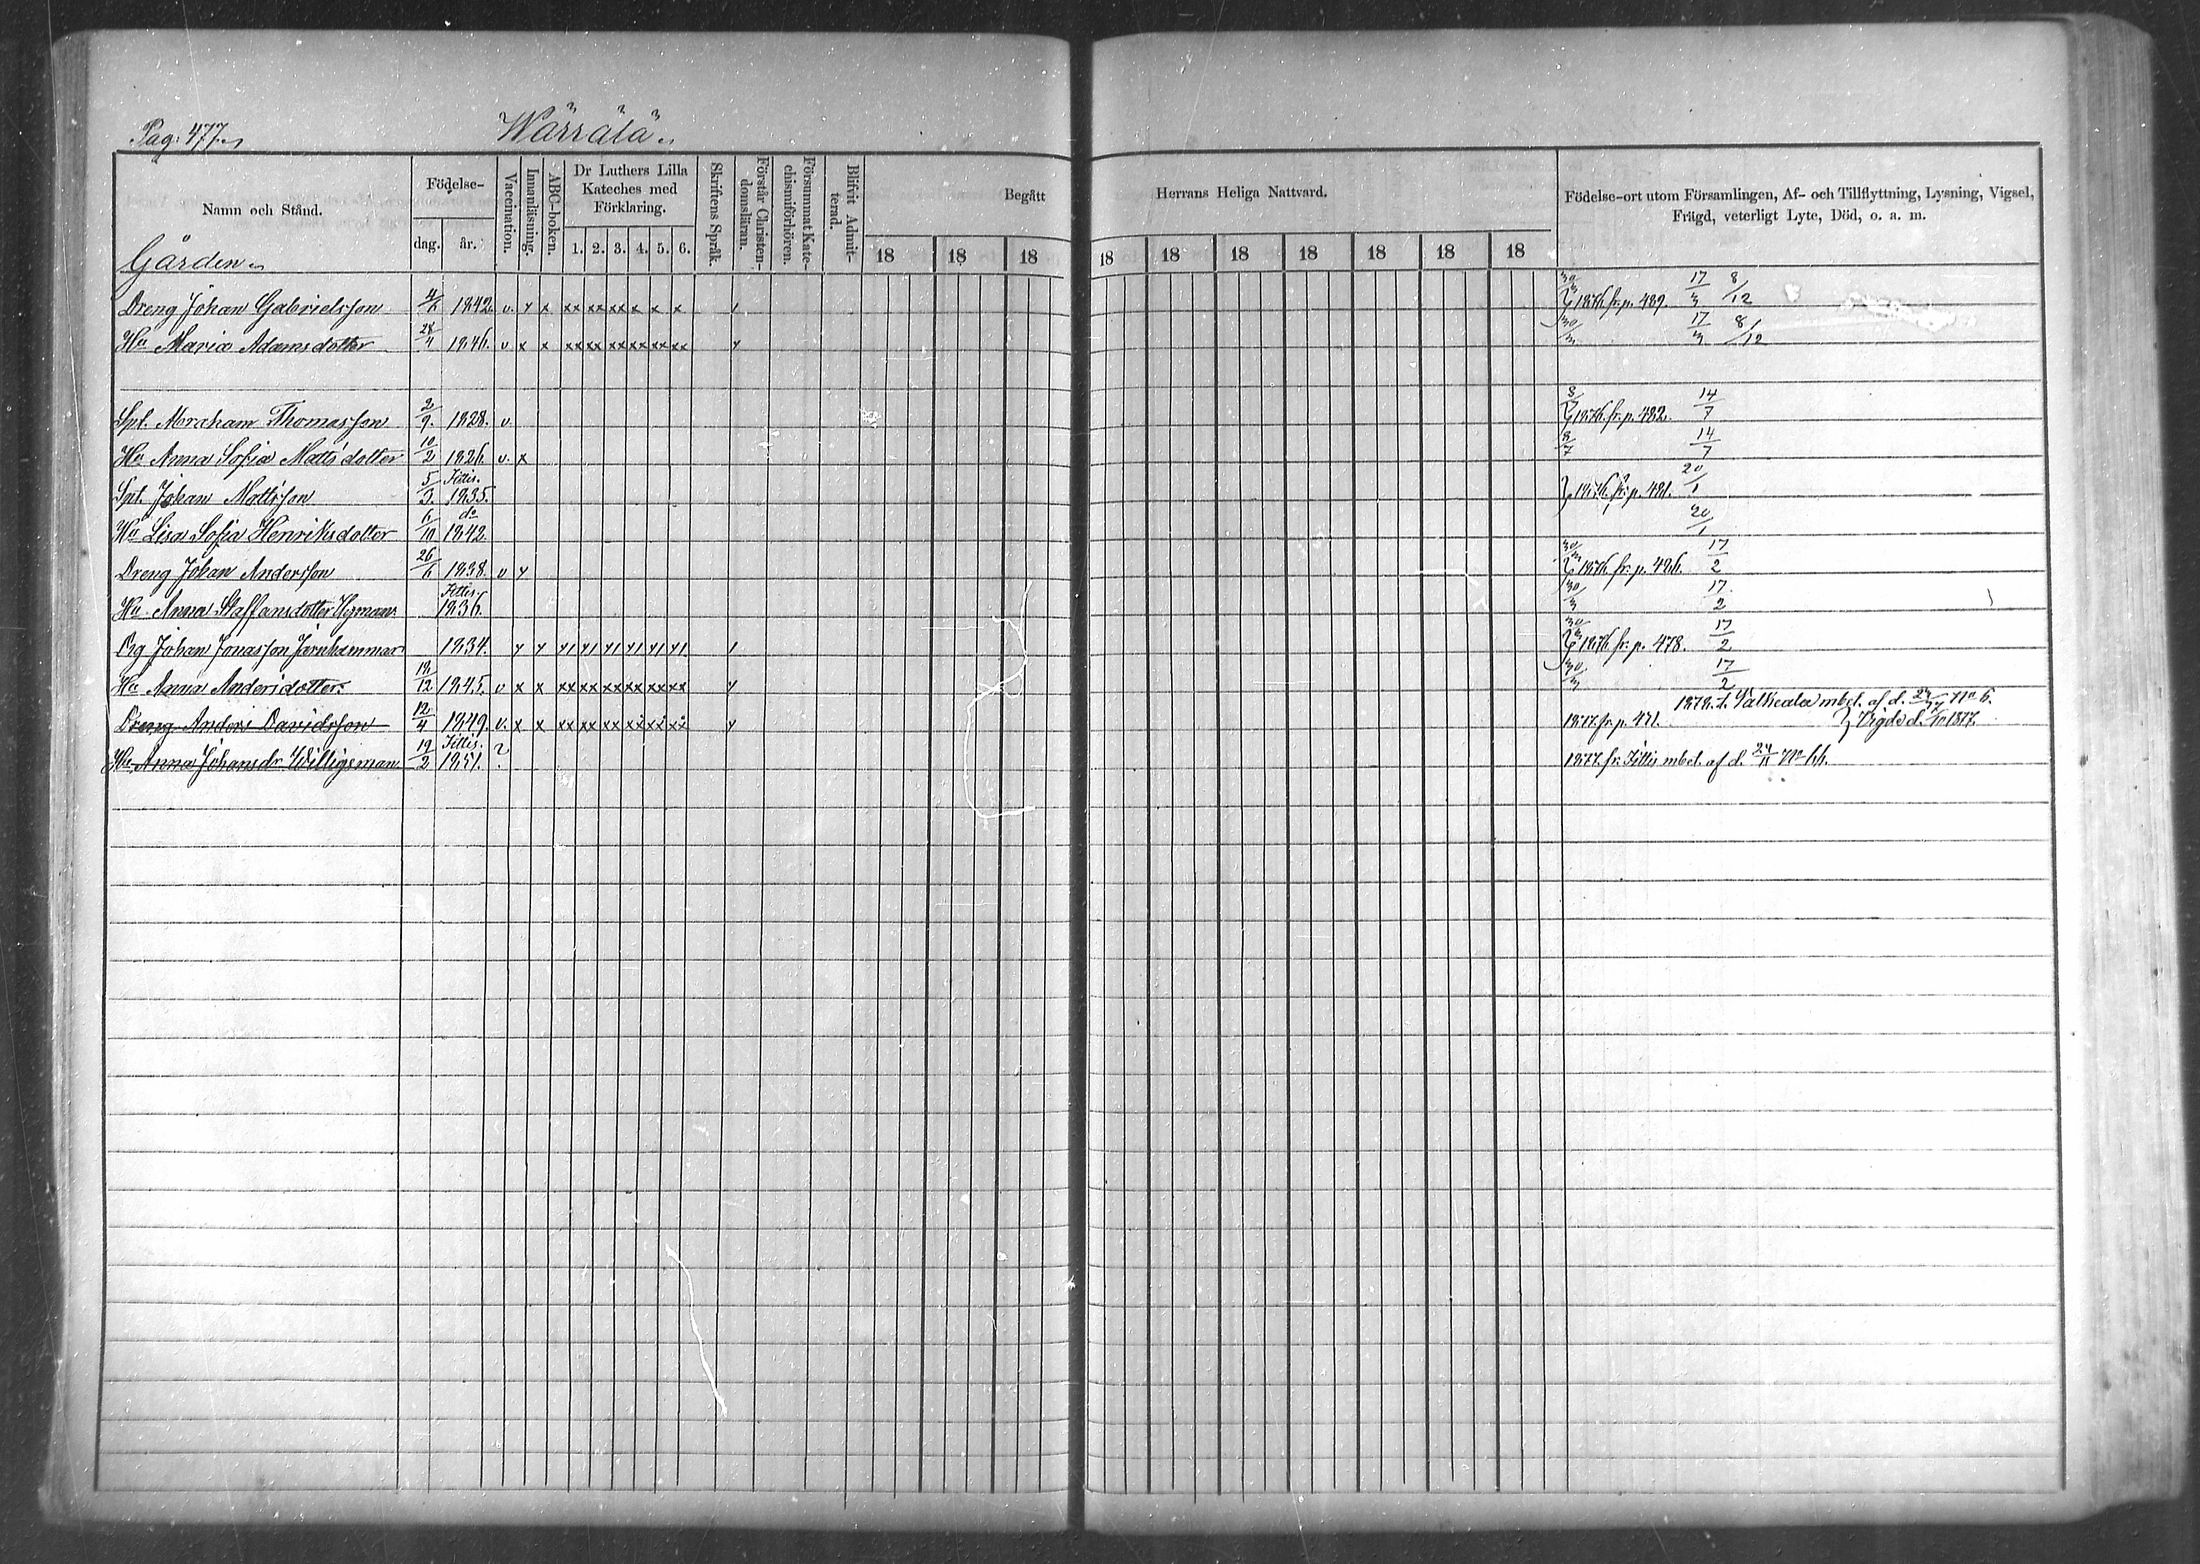 Pag: 477.
Wärälä
Namn och Stånd.
Födelse-
dag. år.
Vaccination.
Innanläsning.
ABC-boken.
Dr Luthers Lilla Kateches med Förklaring.
1. 2. 3. 4. 5. 6.
Skriftens Språk.
Förstår Christendomsläran.
Försummat Katechismiförhören.
Blifvit Admitterad.
Begått
Herrans Heliga Nattvard.
18 18 18 18 18 18 18 18 18 18
Födelse-ort utom Församlingen, Af- och Tillflyttning, Lysning, Vigsel,
Frägd, veterligt Lyte, Död, o. a. m.
Gården
Dreng Johan Gabrielsson 4/6 1842. v. x x xx xx xx x x x 1876. fr. p. 489. 17/3 8/12
Hu Maria Adamsdotter 28/4 1846. v x x xx xx xx xx xx xx 30/3 17/3 8/12
Spl. Abraham Thomasson 2/9. 1828. v. 1876. fr. p. 482. 14/7
Hu Anna Sofia Mattsdotter 10/2 1826. v. x 8/7 14/7
Spl. Johan Mattsson 5/3. Ittis. 1835. 1876. fr. p. 481. 20/1
Hu Lisa Sofia Henriksdotter 6/10 do 1842. 20/1
Dreng Johan Andersson 26/6 1838. v 1876. fr. p. 426. 17/2
Hu Anna Staffansdotter Ittis. 1836. 30/3 17/2
Dg Johan Jonasson Järnhammar 1834. 1876. fr. p. 478. 17/2
Hu Anna Andersdotter. 1845. v x x xx xx xx xx xx xx 30/3 17/2
1878. t. Walkeala mbet. af d. No 6.
Dreng Anders Davidsson 12/4 1849. v. x x xx xx xx xx xx xx 1877. fr. p. 471. Vigde d. 1877.
Hu Anna Johansdr Willigsman 19/2 Ittis. 1851. ? 1877. fr. Ittis mbet. af d. 24/11 No 66.